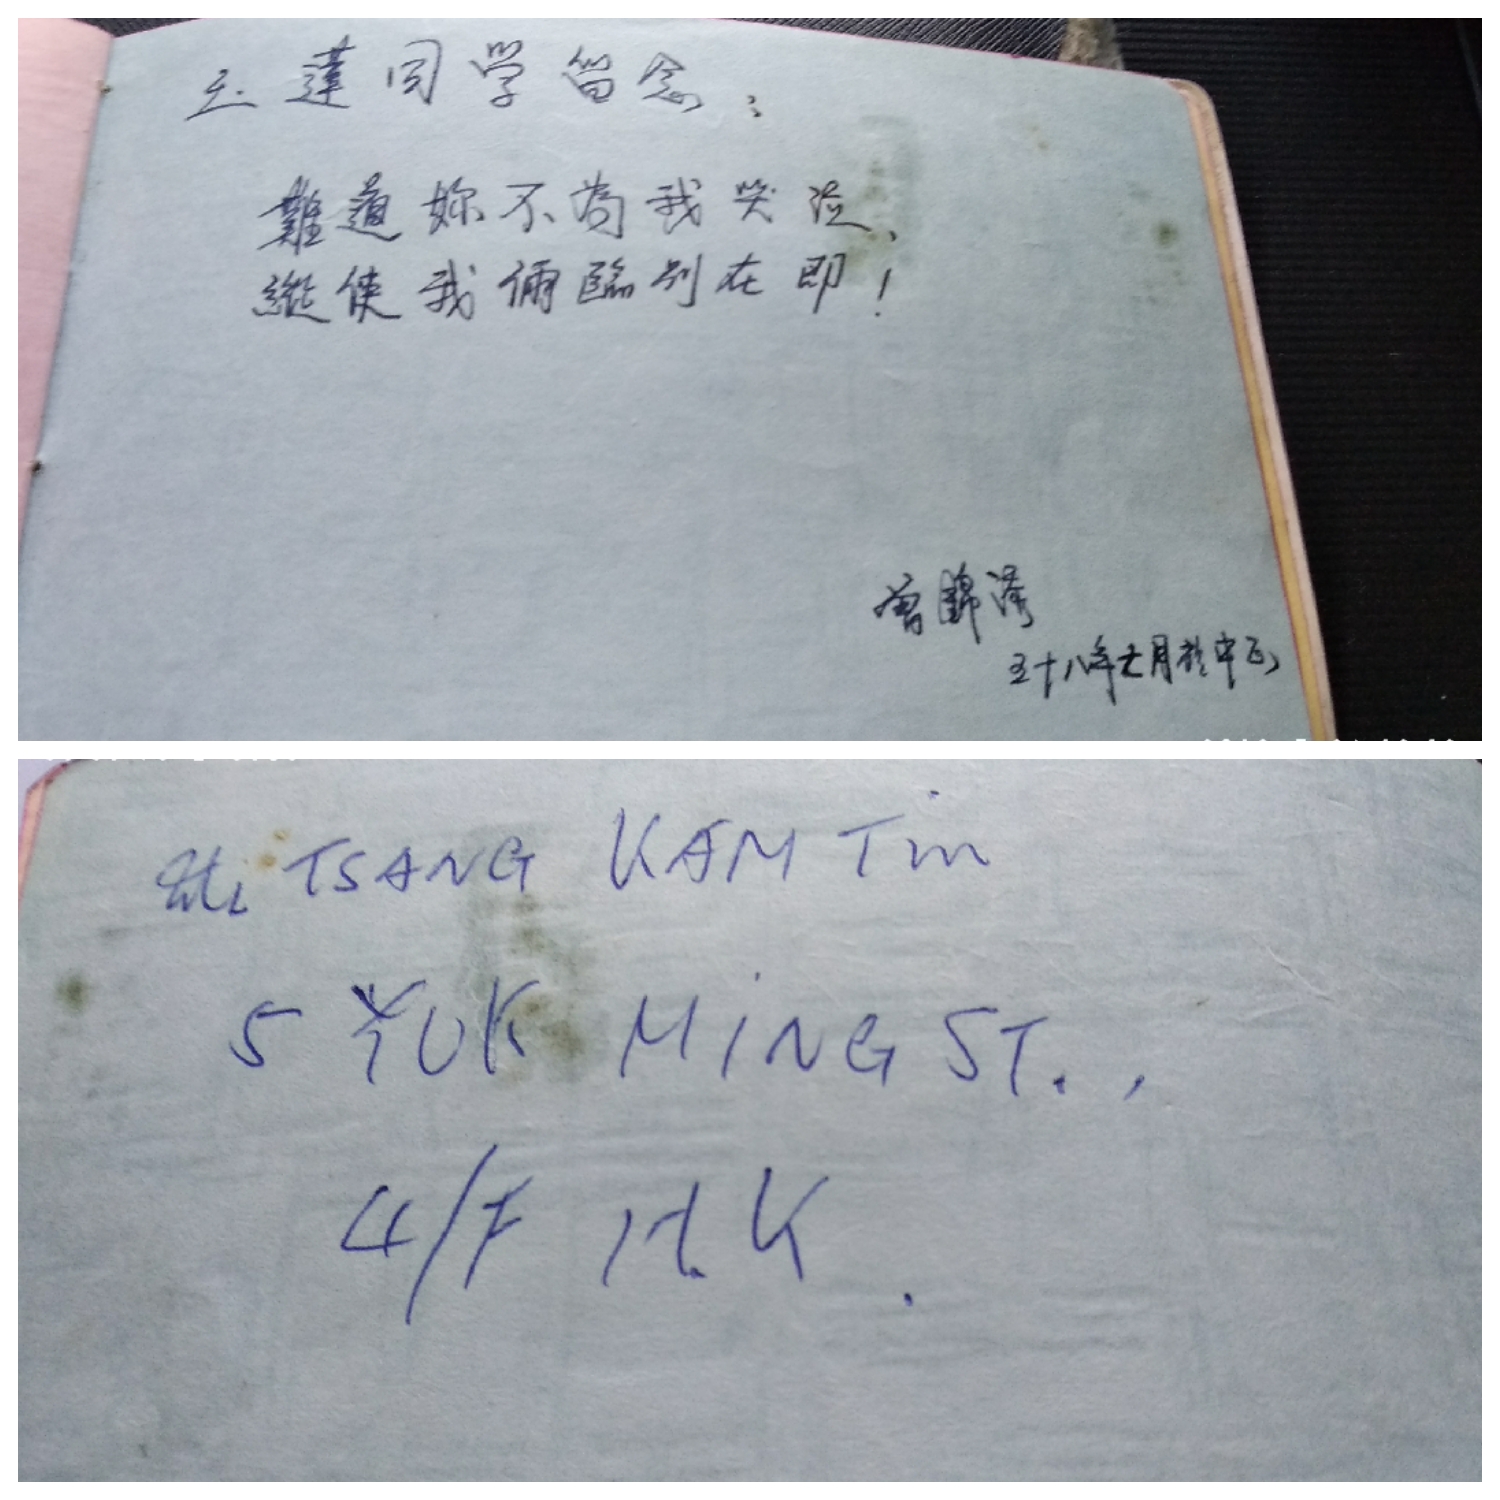 玉蓮同学留念：
難道妳不為我哭泣、
縱使我倆臨別在即！
曾錦
五十八年七月於中
TSANG KAM Tin
5 YUK MiNG ST.,
4/F H.K.